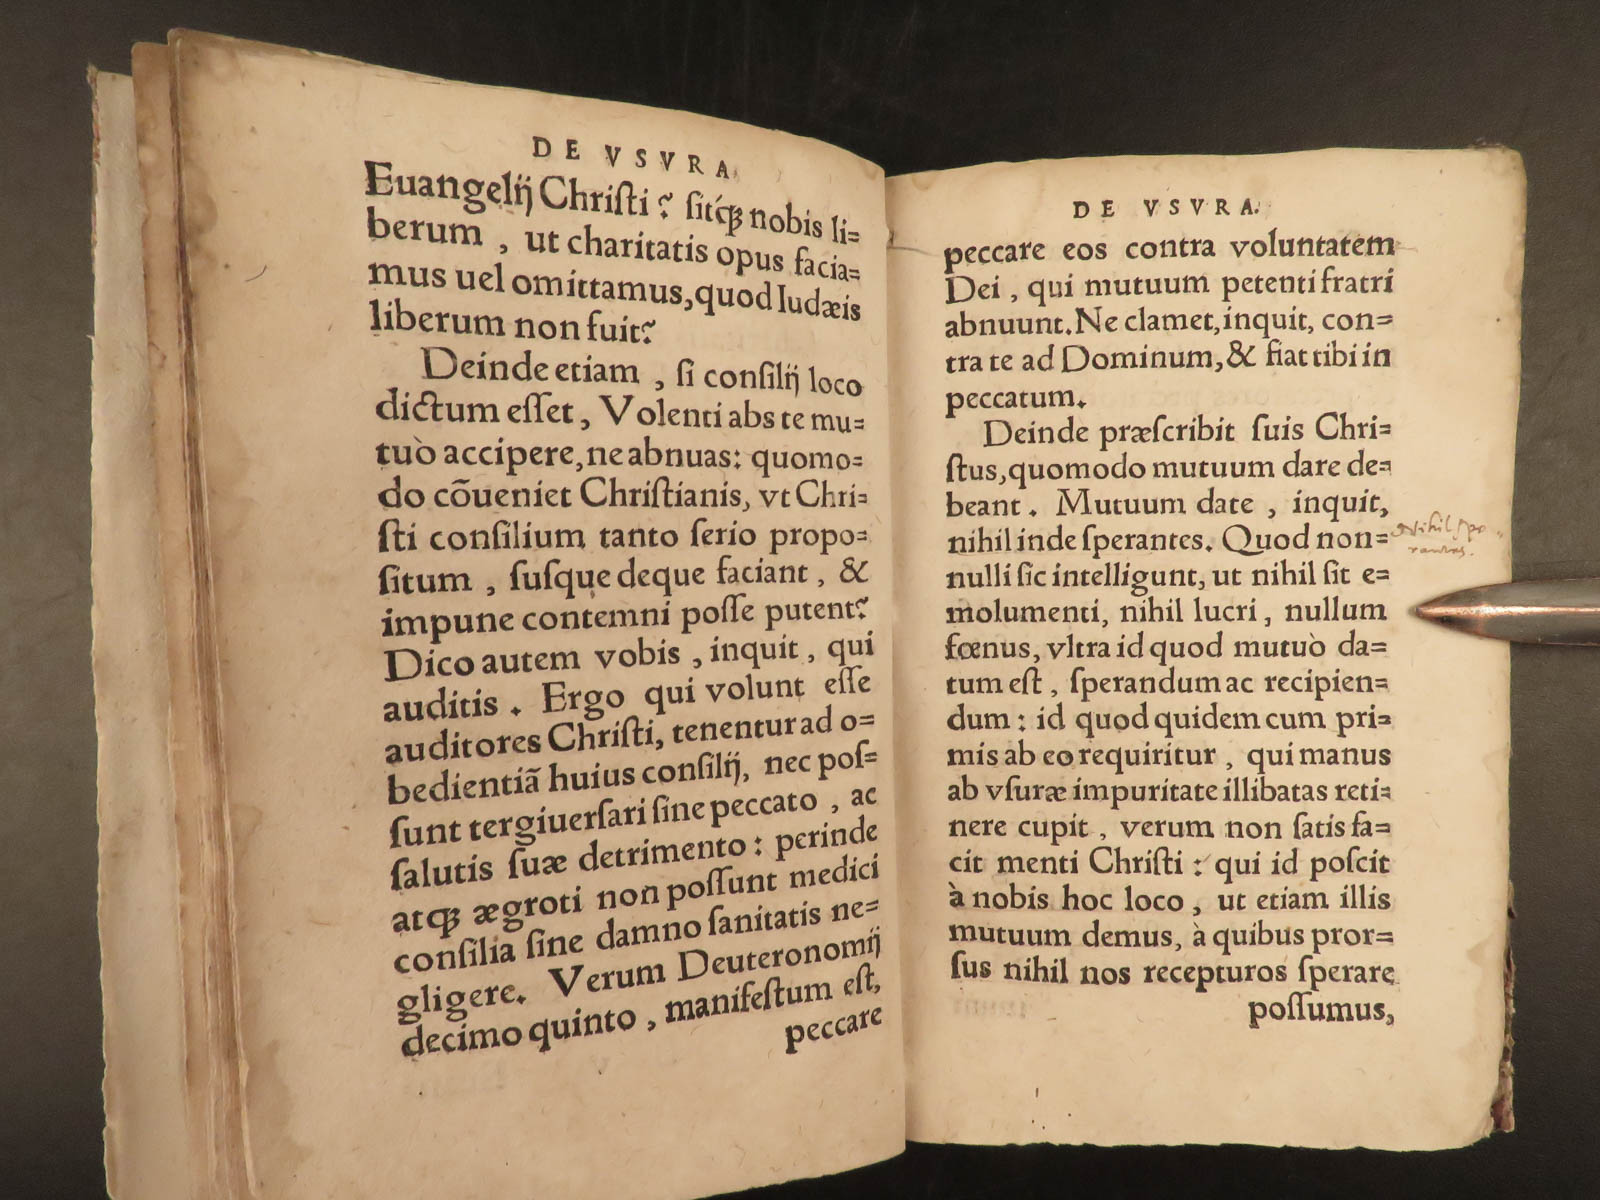 DE VSVRA.
Euangelij Chriſti? ſitq́ꝫ nobis li=
berum, ut charitatis opus facia=
mus uel omittamus, quod Iudæis
liberum non fuit?
Deinde etiam, ſi conſilij loco
dictum eſſet, Volenti abs te mu=
tuò accipere, ne abnuas: quomo=
do cõueniet Chriſtianis, vt Chri=
ſti conſilium tanto ſerio propo=
ſitum, ſuſque deque faciant, &
impune contemni poſſe putent?
Dico autem vobis, inquit, qui
auditis. Ergo qui volunt eſſe
auditores Chriſti, tenentur ad o=
bedientiã huius conſilij, nec poſ=
ſunt tergiuerſari ſine peccato, ac
ſalutis ſuæ detrimento: perinde
atqꝫ ægroti non poſſunt medici
conſilia ſine damno ſanitatis ne=
gligere. Verum Deuteronomij
decimo quinto, manifeſtum eſt,
peccare
DE VSVRA.
peccare eos contra voluntatem
Dei, qui mutuum petenti fratri
abnuunt. Ne clamet, inquit, con=
tra te ad Dominum, & fiat tibi in
peccatum.
Deinde præſcribit ſuis Chri=
ſtus, quomodo mutuum dare de=
beant. Mutuum date, inquit,
nihil inde ſperantes. Quod non=
nulli ſic intelligunt, ut nihil ſit e=
molumenti, nihil lucri, nullum
fœnus, vltra id quod mutuò da=
tum eſt, ſperandum ac recipien=
dum: id quod quidem cum pri=
mis ab eo requiritur, qui manus
ab vſuræ impuritate illibatas reti=
nere cupit, verum non ſatis fa=
cit menti Chriſti: qui id poſcit
à nobis hoc loco, ut etiam illis
mutuum demus, à quibus pror=
ſus nihil nos recepturos ſperare
poſſumus,
Nihil